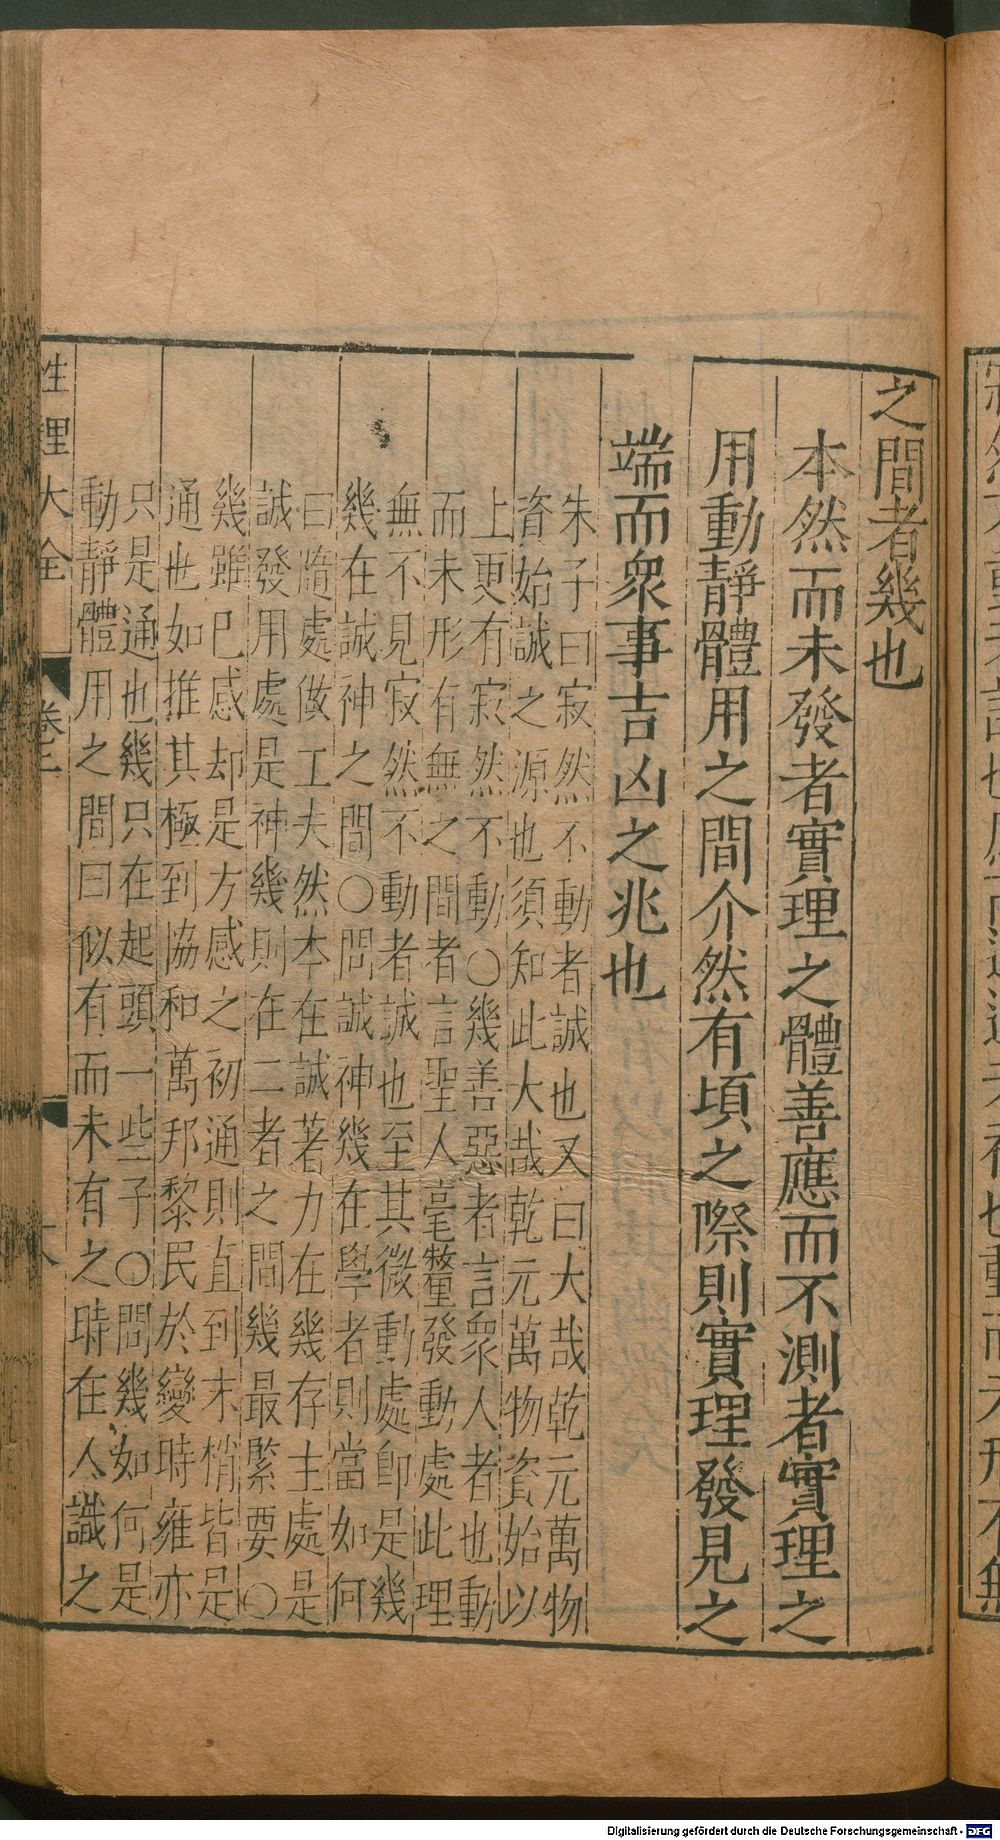 之間者幾也
本然而未發者實理之體善應而不測者實理之
用動靜體用之間介然有頃之際則實理發見之
端而衆事吉凶之兆也
朱子曰寂然不動者誠也又曰大哉乾元萬物
資始誠之源也須知此大哉乾元萬物資始以
上更有寂然不動○幾善惡者言衆人者也動
而未形有無之間者言聖人毫釐發動處此理
無不見寂然不動者誠也至其微動處卽是幾
幾在誠神之間○問誠神幾在學者則當如何
曰隨處做工夫然本在誠著力在幾存主處是
誠發用處是神幾則在二者之間幾最緊要○
幾雖已感却是方感之初通則直到末梢皆是
通也如推其極到協和萬邦黎民於變時雍亦
只是通也幾只在起頭一些子○問幾如何是
動靜體用之間曰似有而未有之時在人識之
性理大全 卷二
Digitalisierung gefördert durch die Deutsche Forschungsgemeinschaft - DFG